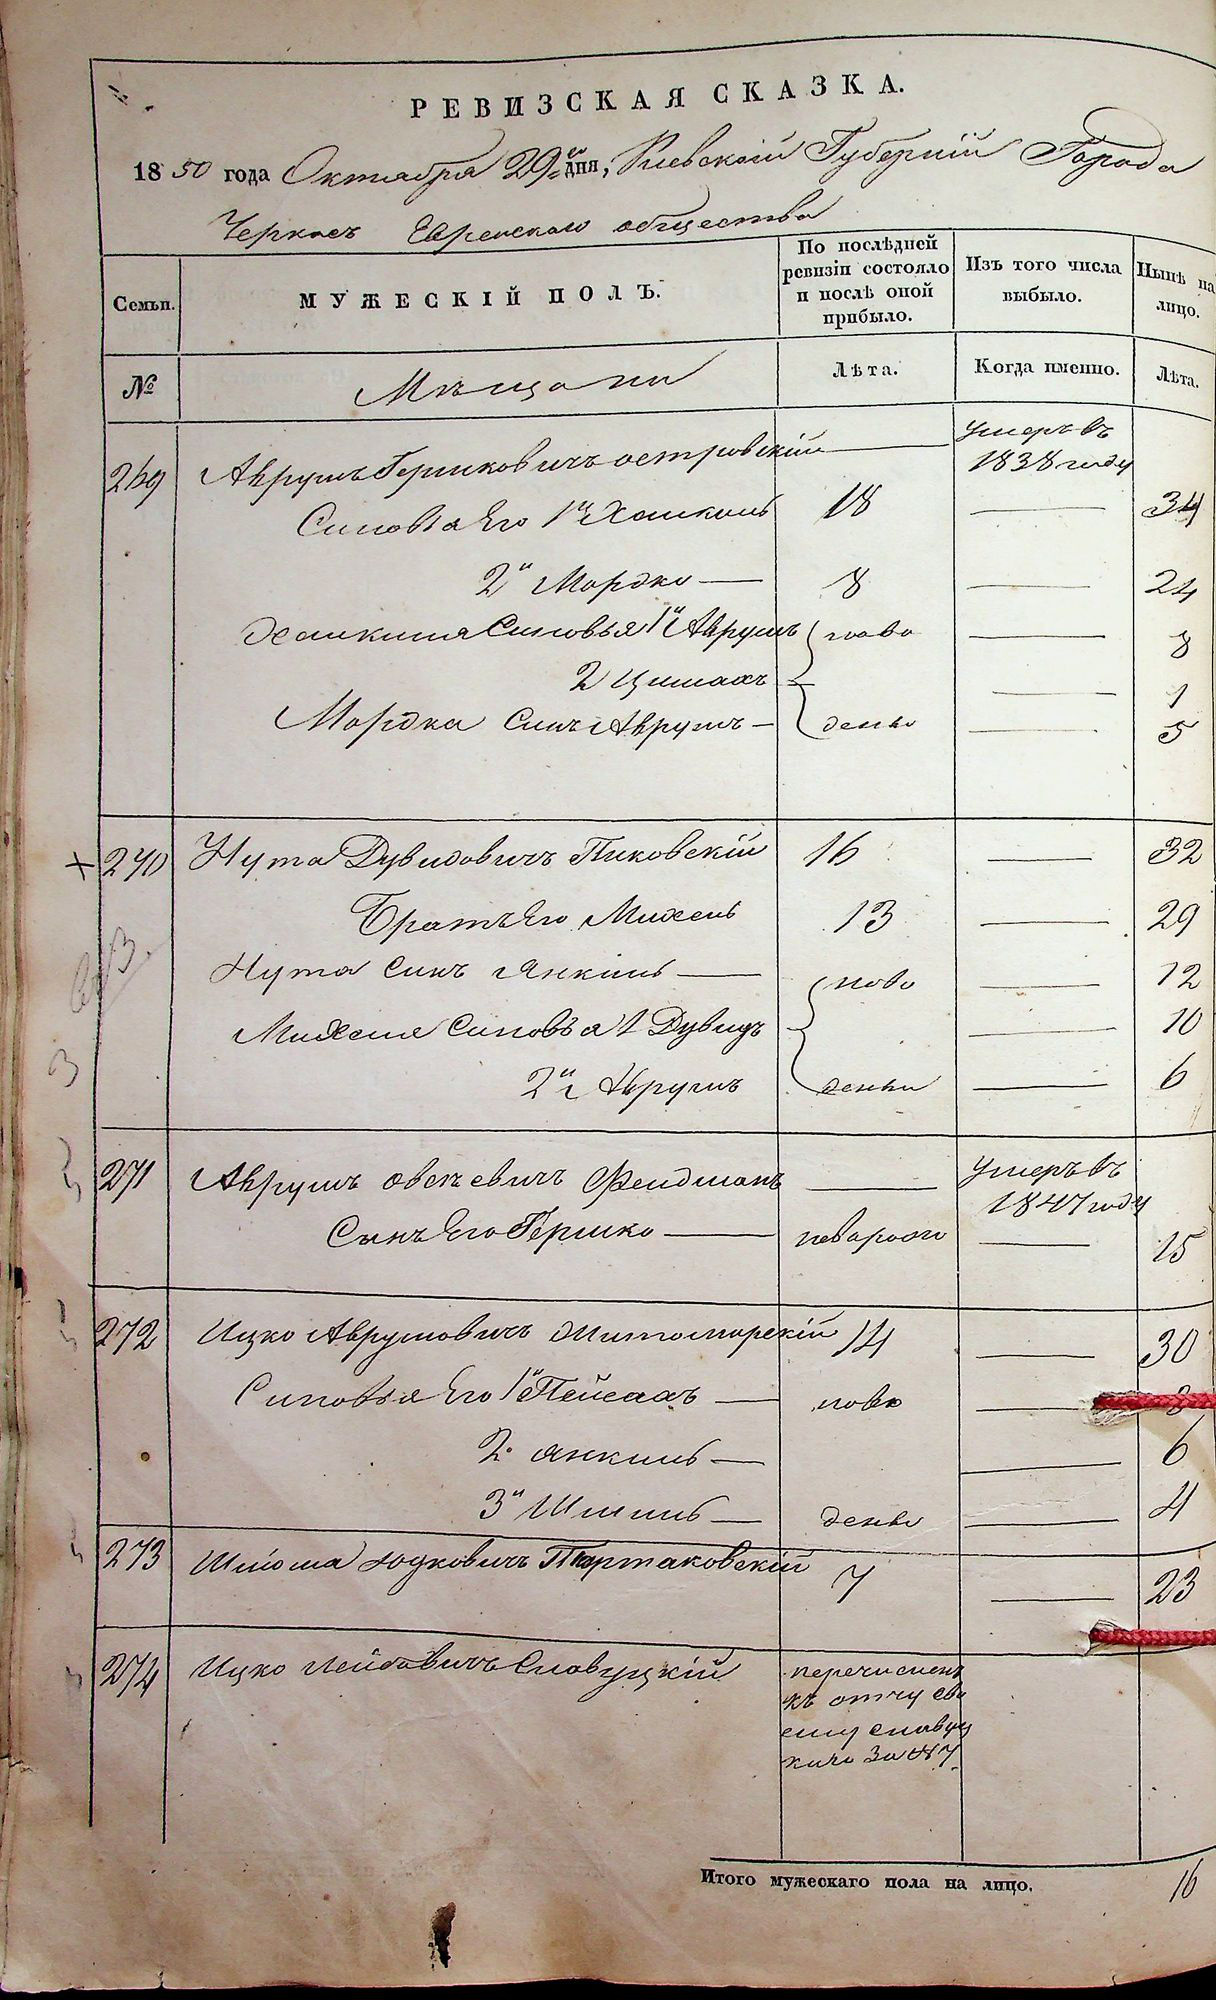 РЕВИЗСКАЯ СКАЗКА.
1850 года Октября 29го дня, Киевской Губернiи Города
Черкас Еврейского общества
Семьи. МУЖЕСКIЙ ПОЛЪ. По послѣдней ревизiи состояло и послѣ оной прибыло. Изъ того числа выбыло. Нынѣ на лицо.
№ Мѣщани Лѣта. Когда именно. Лѣта.
269 Аврумъ Гершковичъ островскiй — умеръ въ 1838 году
Синовя Его 1й Хаимкиль 18 — 34
2й Мордко — 8 — 24
Синовья 1й Аврумъ ново — 8
2 — 1
Мордка Синъ Аврумъ — денъ — 5
270 Нута Дувидовичъ Пиковскiй 16 — 32
Братъ Его Михель 13 — 29
Нута Синъ Янкиль — ново — 12
Михеля Синовъя 1 Дувидъ — 10
2й Аврумъ денъи — 6
271 Аврумъ Фелдманъ — умеръ въ 1847 году
Сынъ Его Гершко — — 15
272 Ицко Аврумовичъ Житомирскiй 14 — 30
Синовья Его 1й Пейсахъ — ново — 8
2. янкиль — — 6
3й Шмиль — денъ — 4
273 Юдковичъ Портаковскiй 7 — 23
274 Ицко Лейбовичъ Славуцкiй перечисленъ къ отцу сво ему славуц кого За №7.
Итого мужескаго пола на лицо. 16